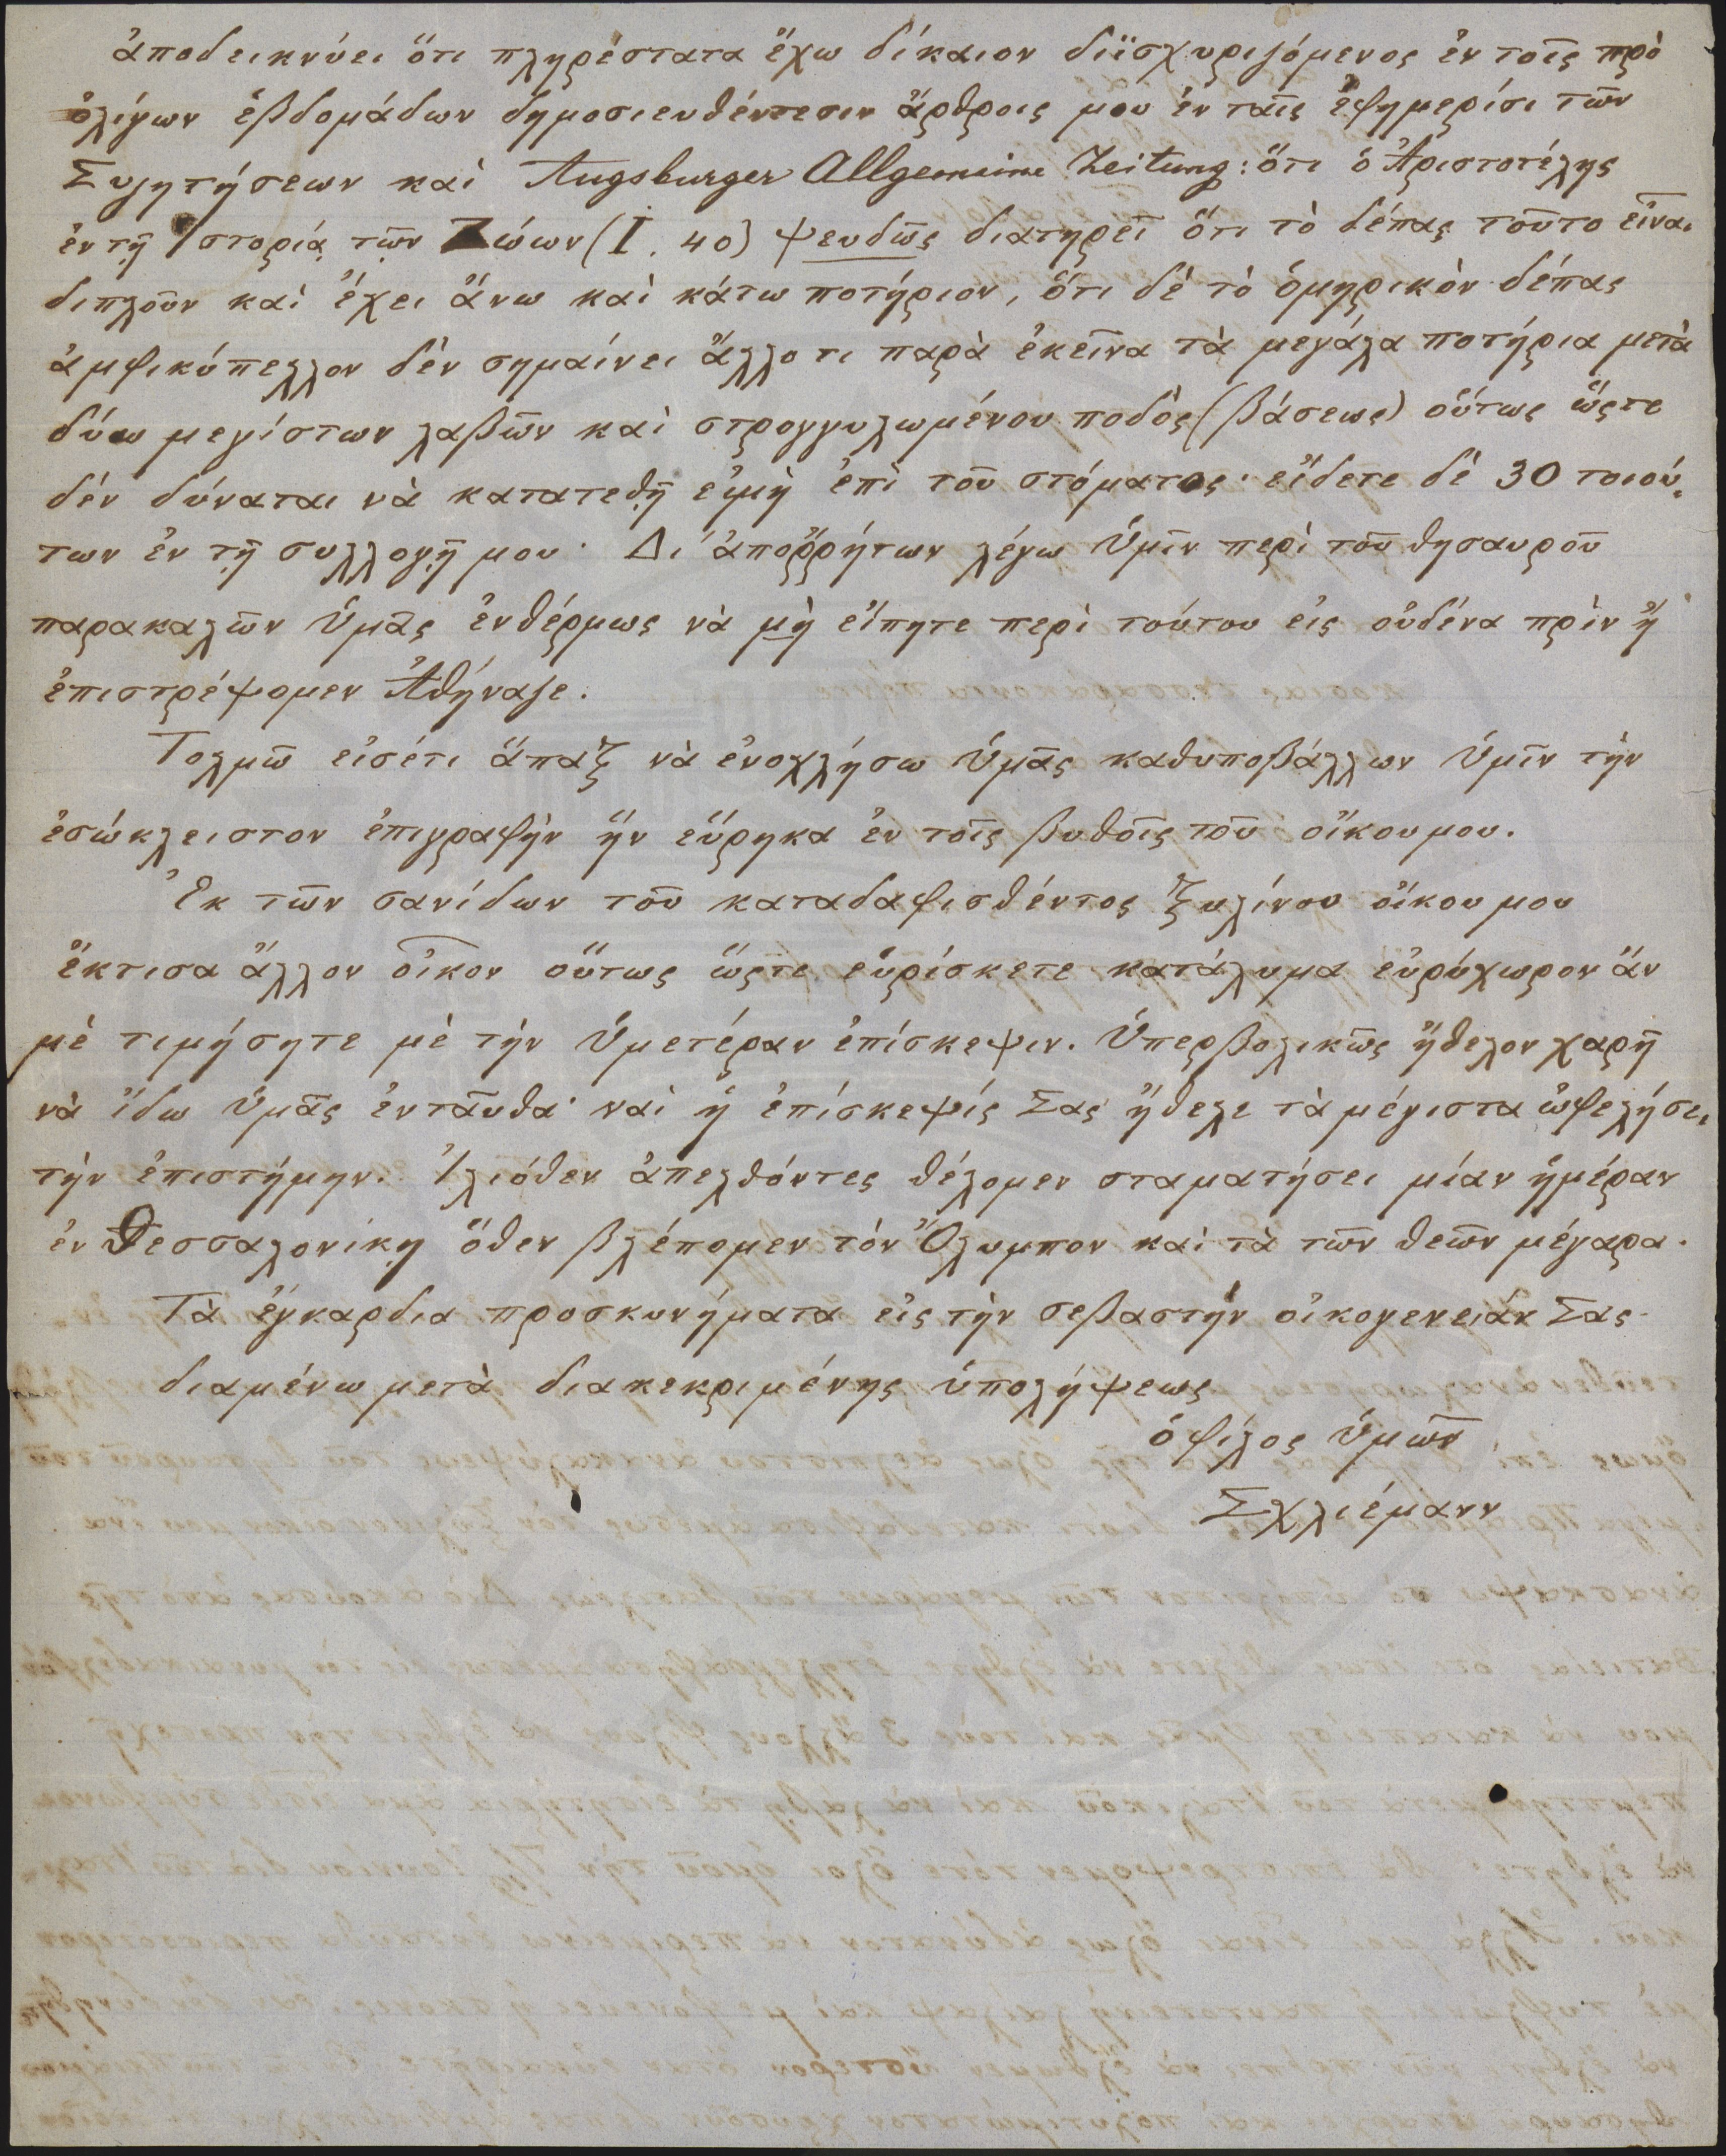 ἀποδεικνύει ὅτι πληρέστατα ἔχω δίκαιον διϊσχυριζόμενος ἐν τοῖς πρὸ
ὀλίγων ἑβδομάδων δημοσιευθέντεσιν ἄρθροις μου ἐν ταῖς ἐφημερίσι τῶν
Συζητήσεων καὶ Augsburger Allgemeine Zeitung: ὅτι ὁ Ἀριστοτέλης
ἐν τῇ Ἱστορίᾳ τῶν Ζώων (I. 40) ψευδῶς διατηρεῖ ὅτι τὸ δέπας τοῦτο εἶναι
διπλοῦν καὶ ἔχει ἄνω καὶ κάτω ποτήριον, ὅτι δὲ τὸ ὁμηρικὸν δέπας
ἀμφικύπελλον δὲν σημαίνει ἄλλο τι παρὰ ἐκεῖνα τὰ μεγάλα ποτήρια μετὰ
δύω μεγίστων λαβῶν καὶ στρογγυλωμένου ποδὸς (βάσεως) οὕτως ὥςτε
δὲν δύναται νὰ κατατεθῇ εἰμὴ ἐπὶ τοῦ στόματος· εἴδετε δὲ 30 τοιού-
των ἐν τῇ συλλογῇ μου· Δι' ἀποῤῥήτων λέγω Ὑμῖν περὶ τοῦ θησαυροῦ
παρακαλῶν Ὑμᾶς ἐνθέρμως νὰ μὴ εἴπητε περὶ τούτου εἰς οὐδένα πρὶν ἢ
ἐπιστρέψομεν Ἀθήναζε.
Τολμῶ εἰσέτι ἅπαξ νὰ ἐνοχλήσω Ὑμᾶς καθυποβάλλων Ὑμῖν τὴν
ἐσώκλειστον ἐπιγραφὴν ἣν εὕρηκα ἐν τοῖς βυθοῖς τοῦ οἴκου μου.
Ἐκ τῶν σανίδων τοῦ καταδαφισθέντος ξυλίνου οἴκου μου
ἔκτισα ἄλλον οἶκον οὕτως ὥςτε εὑρίσκετε κατάλυμα εὐρύχωρον ἂν
μὲ τιμήσητε μὲ τὴν Ὑμετέραν ἐπίσκεψιν. Ὑπερβολικῶς ἤθελον χαρῆ
νὰ ἴδω Ὑμᾶς ἐνταῦθα· ναὶ ἡ ἐπίσκεψίς Σας ἤθελε τὰ μέγιστα ὠφελήσει
τὴν ἐπιστήμην. Ἰλιόθεν ἀπελθόντες θέλομεν σταματήσει μίαν ἡμέραν
ἐν Θεσσαλονίκῃ ὅθεν βλέπομεν τὸν Ὄλυμπον καὶ τὰ τῶν θεῶν μέγαρα.
Τὰ ἐγκαρδια προσκυνήματα εἰς τὴν σεβαστήν οἰκογενειάν Σας
διαμένω μετὰ διακεκριμένης ὑπολήψεως
ὁ φίλος Ὑμῶν
Σχλιέμανν